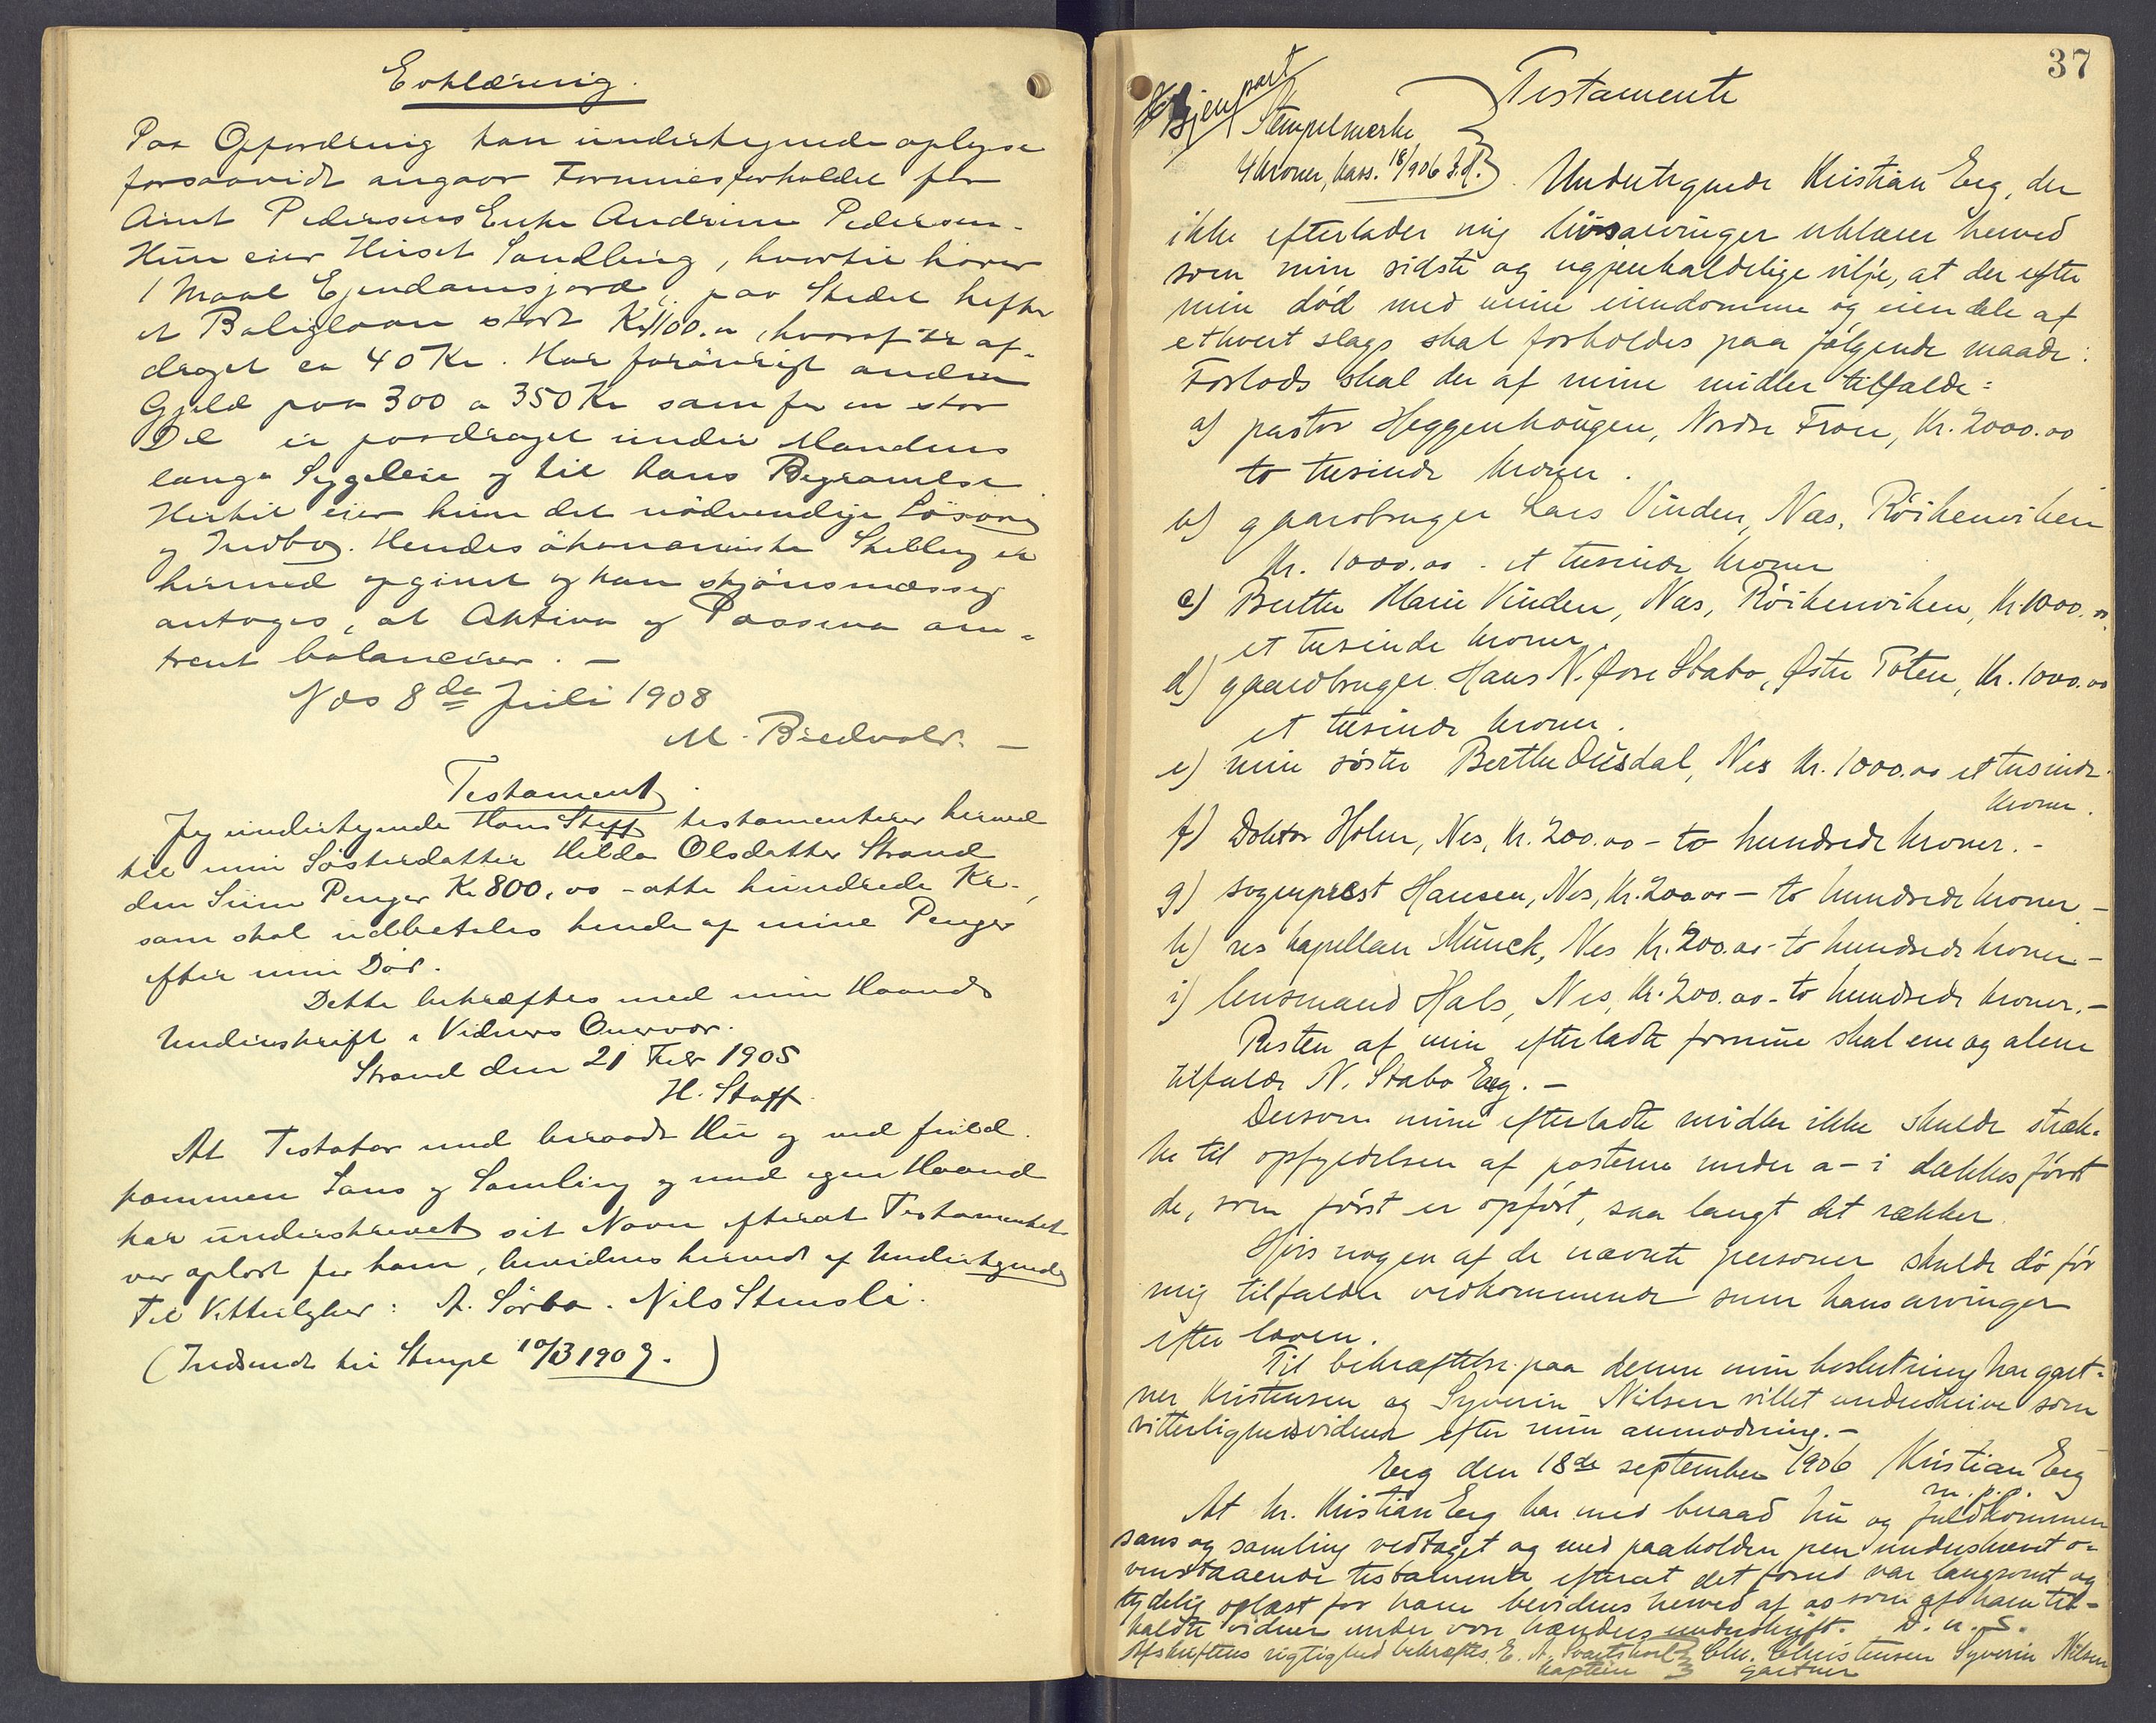 Erklæring.
Paa Opfordring kan undertegnede oplyse
forsaavidt angaar Formuesforholdet for
Arnt Pedersens Enke Andrine Pedersen.
Hun eier Huset Sandling, hvortil hører
1 Maal Ejendomsjord, paa Stedet hefter
et Boliglaan stort Kr 1100.00, hvoraf er af-
draget ca 40 Kr. Har forøvrigt anden
Gjæld paa 300 a 350 Kr som for en stor
Del er paadraget under Mandens
lange Sygeleie og til hans Begravelse
Hertil eier hun det nødvendige Løsøre
og Indbo. Hendes økonomiske Stilling er
hermed opgivet og kan skjønsmæssig
antages, at Aktiva og Passiva om-
trent balancerer. —
Nes 8de Juli 1908
M. Bredvold. —
Testament.
Jeg undertegnede Hans Staff testamenterer herved
til min Søsterdatter Hilda Olsdatter Strand
den Sum Penger Kr 800,00 - otte hundrede Kr.,
som skal udbetales hende af mine Penger
efter min Død.
Dette bekræftes med min Haands
Underskrift i Vidners Overvær.
Strand den 21 Febr 1905
H. Staff.
At Testator med beraadt Hu og med fuld-
kommen Sans og Samling og med egen Haand
har underskrevet sit Navn efterat Testamentet
var oplæst for ham, bevidnes herved af Undertegnede
Til Vitterlighed: A. Sørbo. Nils Stensli.
(Indsendt til Stempl 10/3 1909.)
37
Gjenpart
Testamente
Stempelmerke
4 kroner, kass. 18/9 06
Undertegnede Kristian Eeg, der
ikke efterlader mig livsarvinger erklærer herved
som min sidste og ugjenkaldelige vilje, at der efter
min død med mine eiendomme og eiendele af
ethvert slags skal forholdes paa følgende maade:
Forlods skal der af mine midler tilfalde:
a) pastor Heggenhougen, Nordre Fron, Kr. 2000.00
to tusinde kroner.
b) gaardbruger Lars Vinden, Næs, Røikenviken
Kr. 1000.00 - et tusinde kroner
c) Berthe Marie Vinden, Næs, Røikenviken, Kr. 1000.00
et tusinde kroner.
d) gaardbruger Hans N. Øvre Stabo, Østre Toten, Kr. 1000.00
et tusinde kroner.
e) min søster Berthe Dusdal, Nes Kr. 1000.00 et tusinde
kroner.
f) Doktor Holm, Nes, Kr. 200.00 - to hundrede kroner. -
g) sogneprest Hansen, Nes, Kr. 200.00 - to hundrede kroner -
h) res kapellan Munck, Nes Kr. 200.00 - to hundrede kroner -
i) lensmand Hals, Nes, Kr. 200.00 - to hundrede kroner. -
Resten af min efterladte formue skal ene og alene
tilfalde N. Stabo Eeg. -
Dersom mine efterladte midler ikke skulde stræk-
ke til opfyldelsen af posterne under a - i dækkes først
de, som først er opført, saa langt det rækker.
Hvis nogen af de nævnte personer skulde dø før
mig tilfalder vedkommende sum hans arvinger
efter loven.
Til bekræftelse paa denne min beslutning har gart-
ner Kristensen og Syverin Nilsen villet underskrive som
vitterlighedsvidner efter min anmodning. -
Eeg den 18de september 1906 Kristian Eeg
m. p. p.
At hr. Kristian Eeg har med beraad hu og fuldkommen
sans og samling vedtaget og med paaholden pen underskrevet o-
venstaaende testamente efterat det forud var langsomt og
tydelig oplæst for ham bevidnes herved af os som af ham til-
kaldte vidner under vore hænders underskrift. D. u. S.
Afskriftens rigtighed bekræftes. E. A. Svartskort Chr. Christensen Syverin Nilsen
kaptein gartner